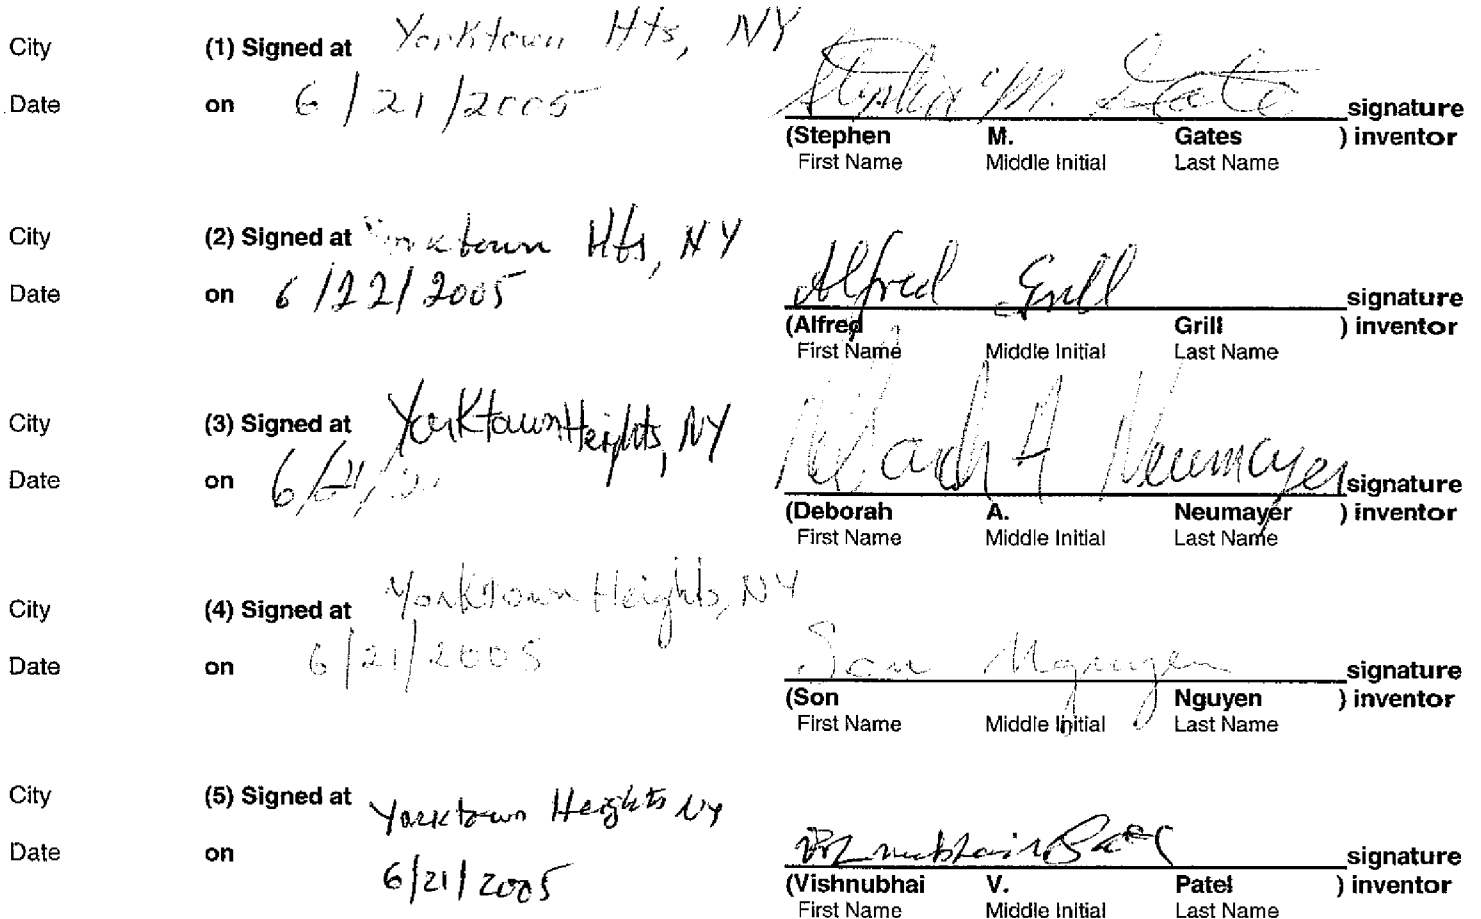 City (1) Signed at Yorktown Hts, NY
Date on 6/21/2005 Stephen M. Gates signature
(Stephen M. Gates ) inventor
First Name Middle Initial Last Name
City (2) Signed at Yorktown Hts, NY
Date on 6/22/2005 Alfred Grill signature
(Alfred Grill ) inventor
First Name Middle Initial Last Name
City (3) Signed at Yorktown Heights, NY
Date on Deborah A Neumayer signature
(Deborah A. Neumayer ) inventor
First Name Middle Initial Last Name
City (4) Signed at Yorktown Heights, NY
Date on 6/21/2005 Son Nguyen signature
(Son Nguyen ) inventor
First Name Middle Initial Last Name
City (5) Signed at Yorktown Heights NY
Date on 6/21/2005 Vishnubhai Patel signature
(Vishnubhai V. Patel ) inventor
First Name Middle Initial Last Name